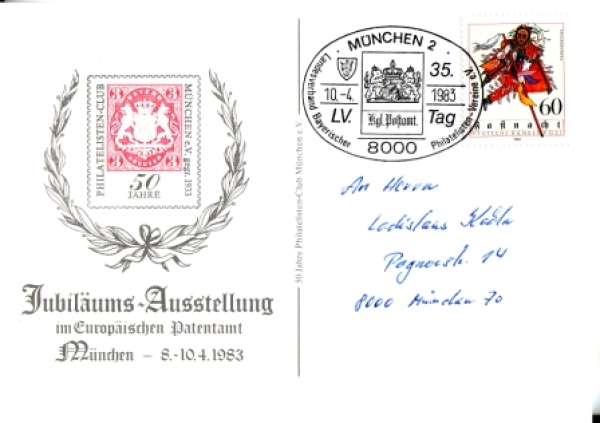 PHILATELISTEN-CLUB
MÜNCHEN e.V. gegr. 1933
3 3
3 3
50
JAHRE
Jubiläums-Ausstellung
im Europäischen Patentamt
München – 8.-10.4.1983
50 Jahre Philatelisten-Club München e.V.
· MÜNCHEN 2 ·
Landesverband Bayerischer
Philatelisten-Vereine e.V.
35.
10.-4. 1983
LV. Tag
Kgl. Postamt.
8000
60
Fastnacht
DEUTSCHE BUNDESPOST
An Herrn
Ladislaus
Pognerstr. 14
8000 München 70